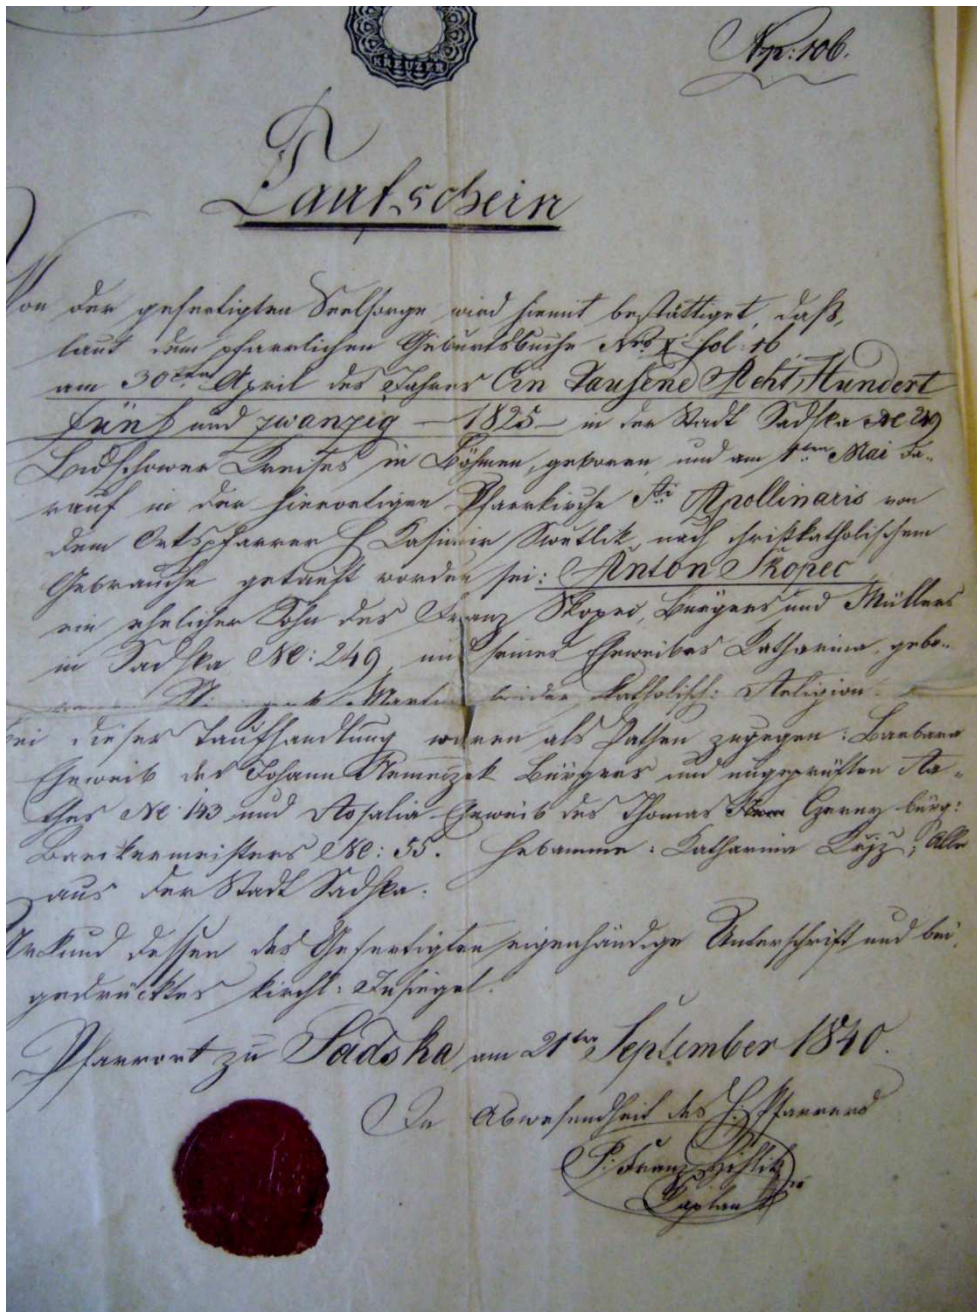 KREUZER
Np: 106.
Taufschein
Von der gefertigten Seelsorge wird hiemit bestättiget, daß,
laut dem pfarrlichen Geburtsbuche Nro X fol: 16
am 30ten April des Jahres Ein Tausend Acht Hundert
fünf und zwanzig — 1825 — in der Stadt Sadska Nc 249
Bidschower Kreises in Böhmen, geboren und am 1ten Mai da-
rauf in der hierortigen Pfarrkirche Sti Apollinaris von
dem Ortspfarrer H Kasimir Swetlik nach christkatholischem
Gebrauche getauft worden sei: Anton Skopec
ein ehelicher Sohn des Franz Skopec, Bürgers und Müllers
in Sadska Nc: 249 und seines Eheweibes Katharina, gebo-
Martin beider katholisch: Religion.
bei dieser Taufhandlung waren als Pathen zugegen: Barbara
Eheweib des Johann Nemeczek Bürgers und ungeprüften Ra-
thes Nc 143 und Rosalia Eheweib des Thomas Czerny bürg:
Baeckermeisters Nc: 55. Hebamme: Katharina; Alle
aus der Stadt Sadska.
Urkund dessen des Gefertigten eigenhändige Unterschrift und bei
gedrücktes kirchl: Insiegel.
Pfarrort zu Sadska am 21ten September 1840.
In Abwesenheit des H. Pfarrers
P: Franz
Caplan